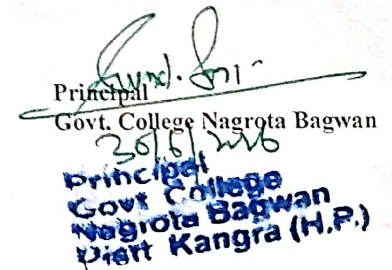 Principal
Govt. College Nagrota Bagwan
30/6/2026
Principal
Govt College
Nagrota Bagwan
Distt Kangra (H.P.)